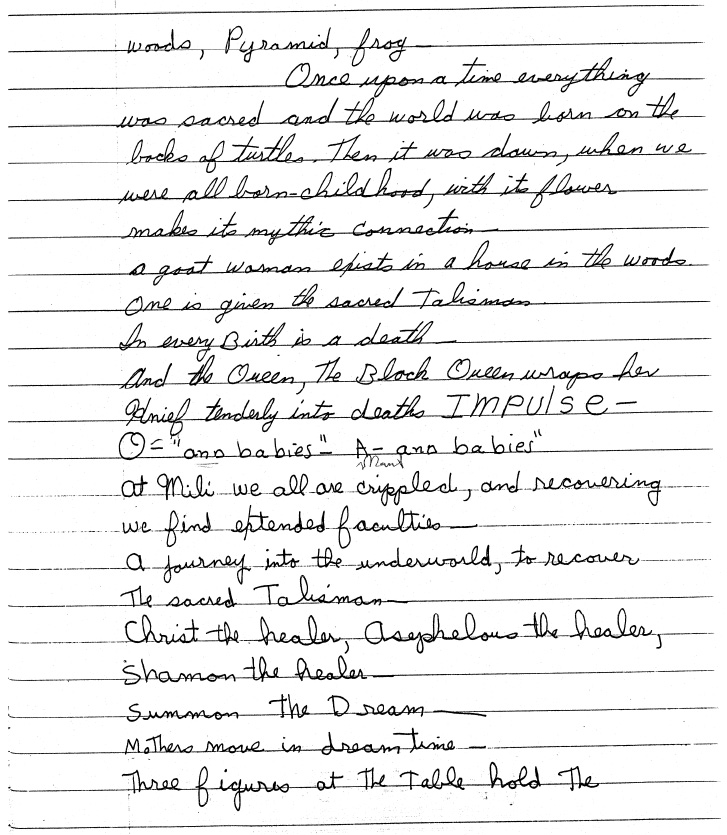 woods, Pyramid, frog—
Once upon a time everything
was sacred and the world was born on the
backs of turtles. Then it was dawn, when we
were all born-childhood, with its flower
makes its mythic connection—
a goat woman exists in a house in the woods.
One is given the sacred Talisman
In every Birth is a death—
And the Queen, The Black Queen wraps her
Knief tenderly into deaths IMPUlSE—
= "ano babies"— A— ano babies"
at Mili we all are crippled, and recovering
we find extended faculties—
a journey into the underworld, to recover
The sacred Talisman—
Christ the healer, Asephelous the healer,
Shamon the healer—
Summon The Dream—
Mothers move in dream time—
Three figures at The Table hold The